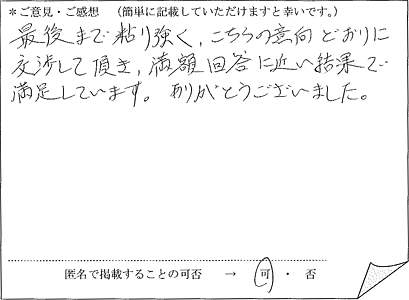 ＊ご意見・ご感想　（簡単に記載していただけますと幸いです。）
最後まで粘り強く、こちらの意向どおりに
交渉して頂き、満額回答に近い結果で
満足しています。ありがとうございました。
匿名で掲載することの可否　→　可　・　否